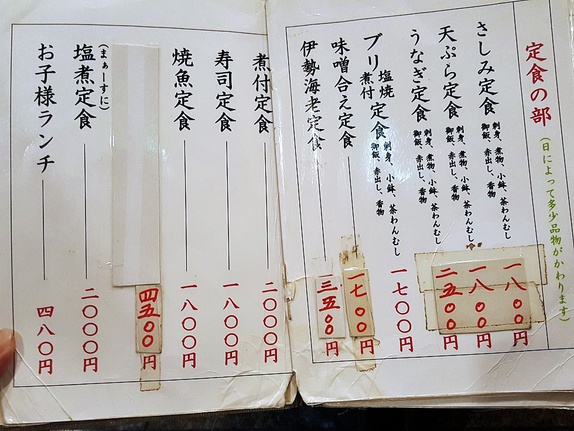 定食の部
(日によって多少品物がかわります)
さしみ定食 刺身、煮物、小鉢、茶わんむし 御飯、赤出し、香物 一八〇〇円
天ぷら定食 刺身、煮物、小鉢、茶わんむし 御飯、赤出し、香物 一八〇〇円
うなぎ定食 刺身、煮物、小鉢、茶わんむし 御飯、赤出し、香物 二五〇〇円
ブリ 塩焼 煮付 定食 刺身、小鉢、茶わんむし 御飯、赤出し、香物 一七〇〇円
味噌合え定食 一七〇〇円
伊勢海老定食 三五〇〇円
煮付定食 二〇〇〇円
寿司定食 一八〇〇円
焼魚定食 一八〇〇円
四五〇〇円
塩煮定食 (まぁーすに) 二〇〇〇円
お子様ランチ 四八〇円